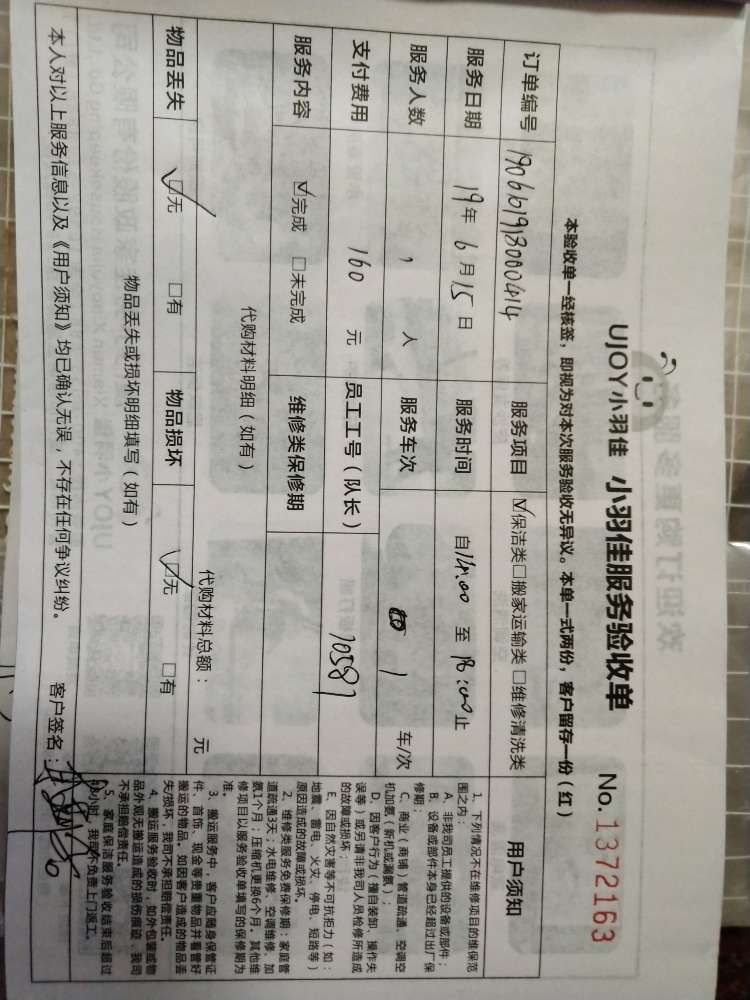 UJOY小羽佳 小羽佳服务验收单 No.1372163
本验收单一经核签，即视为对本次服务验收无异议。本单一式两份，客户留存一份（红）
订单编号 190610191800414 服务项目 ☑保洁类□搬家运输类□维修清洗类
服务日期 19年6月15日 服务时间 自14:00至18:00止
服务人数 1 人 服务车次 1 车/次
支付费用 160 元 员工工号（队长） 10587
服务内容 ☑完成 □未完成 维修类保修期
代购材料明细（如有） 代购材料总额： 元
物品丢失 ☑无 □有 物品损坏 ☑无 □有
物品丢失或损坏明细填写（如有）
本人对以上服务信息以及《用户须知》均已确认无误，不存在任何争议纠纷。 客户签名：
用户须知
1、下列情况不在维修项目的维保范
围之内：
A、非我司员工提供的设备或部件；
B、设备或部件本身已经超过出厂保
修期；
C、商业（商铺）管道疏通、空调空
机加氨（新机或漏氨）；
D、因客户行为（擅自装卸、操作失
误等）或邀请非我司人员检修所造成
的故障或损坏；
E、因自然灾害等不可抗拒力（如：
地震、雷电、火灾、停电、短路等）
原因造成的故障或损坏。
2、维修类服务免费保修期：家庭管
道疏通3天；水电维修、空调维修、加
氨1个月；压缩机更换6个月，其他维
修项目以服务验收单填写的保修期为
准。
3、搬运服务中，客户应随身保管证
件、首饰、现金等贵重物品并看管好
搬运的物品。如因客户造成的物品丢
失/损坏，我司不承担赔偿责任。
4、搬运服务验收时，如外包装或物
品外观无搬运造成的损伤痕迹，我司
不承担赔偿责任。
5、家庭保洁服务验收结束后超过
小时，我司不负责上门返工。